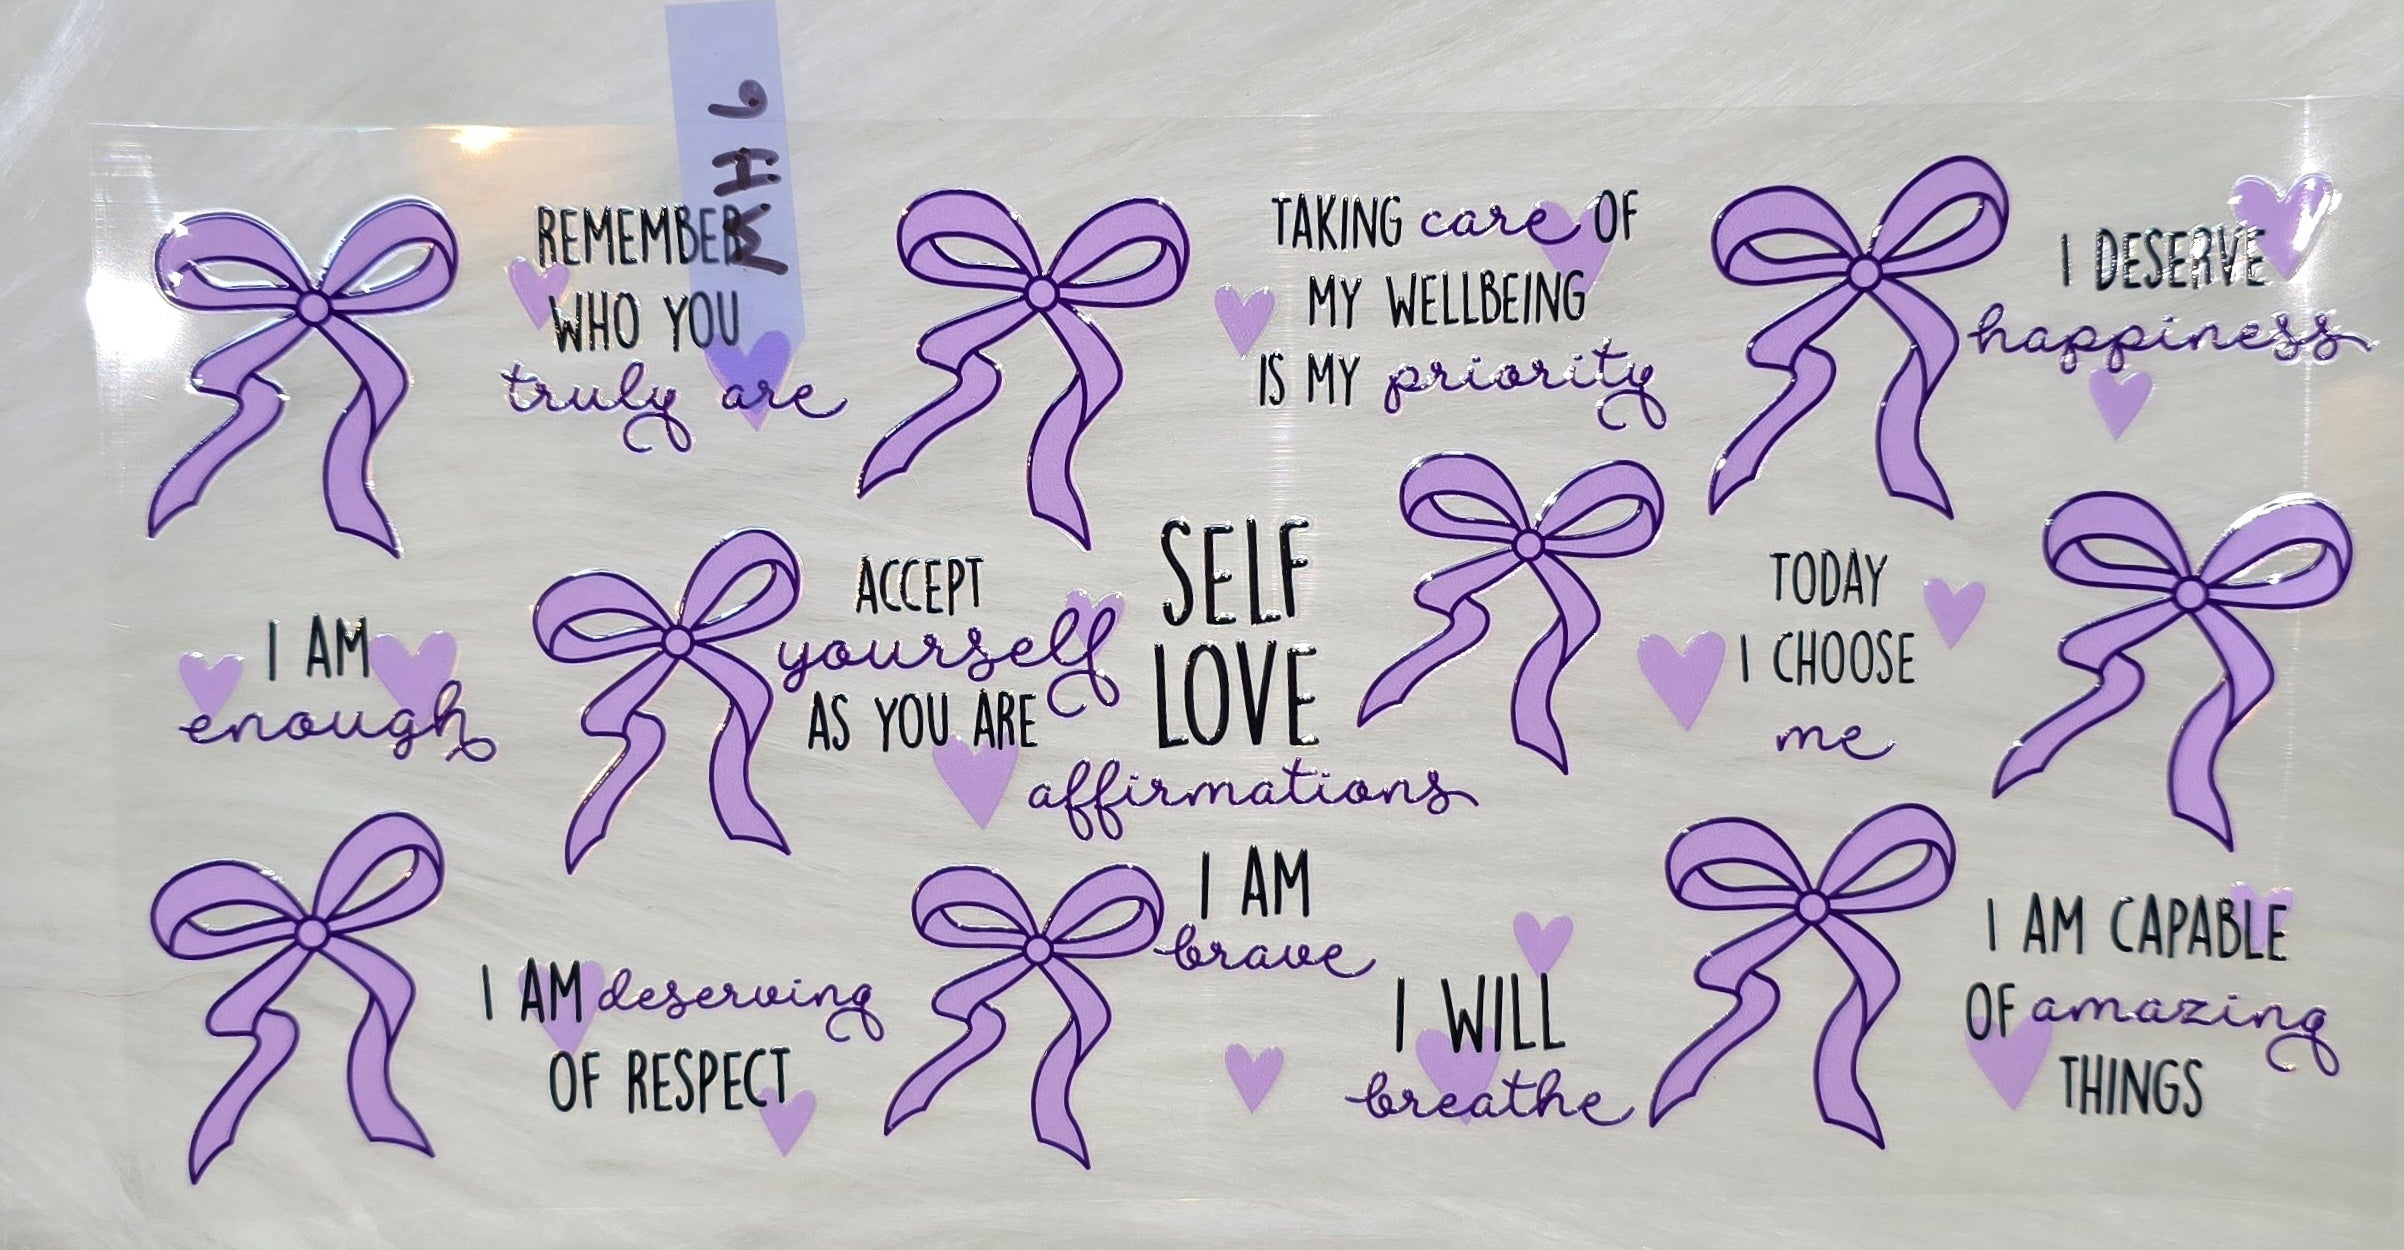 MH 6
REMEMBER
WHO YOU
truly are
TAKING care OF
MY WELLBEING
IS MY priority
I DESERVE
happiness
I AM
enough
ACCEPT
yourself
AS YOU ARE
SELF
LOVE
affirmations
TODAY
I CHOOSE
me
I AM deserving
OF RESPECT
I AM
brave
I WILL
breathe
I AM CAPABLE
OF amazing
THINGS